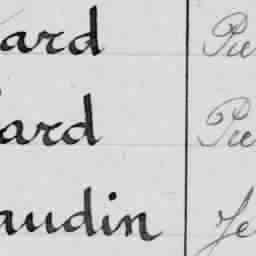 ard Pie
ard Pie
audin Je